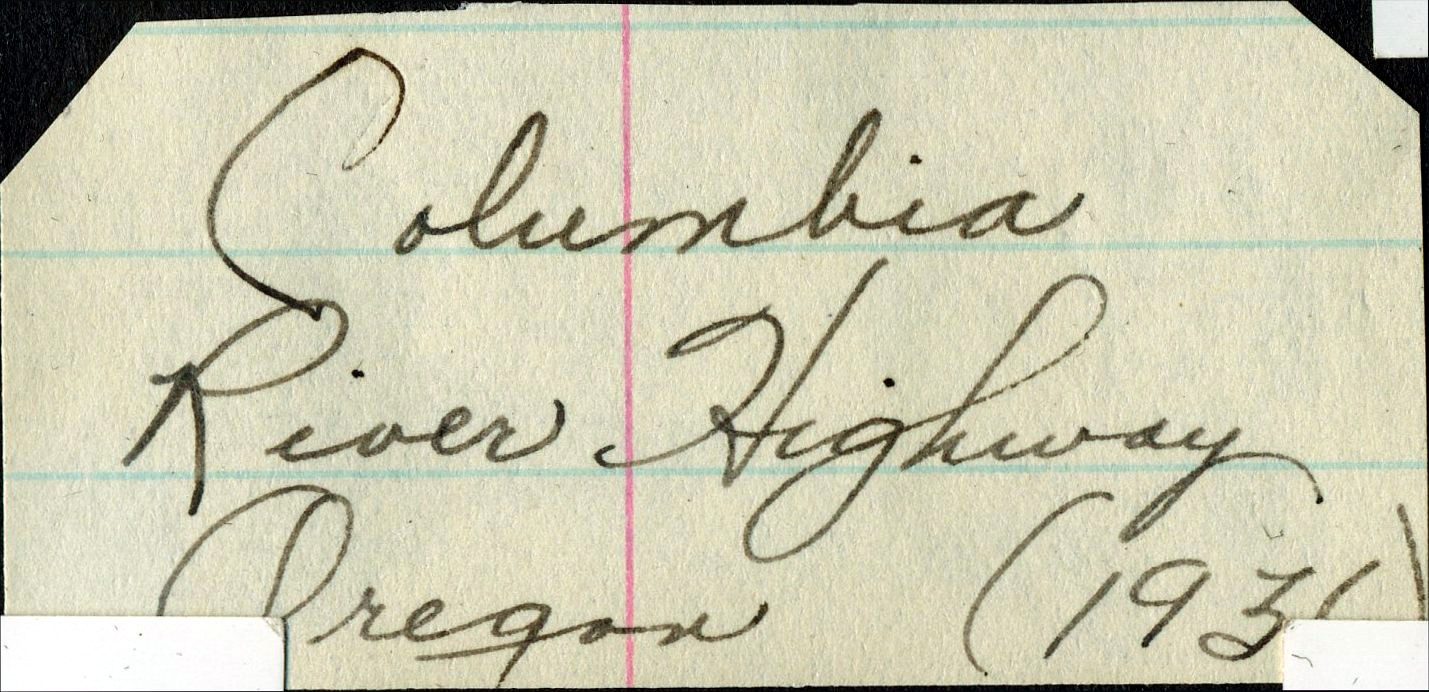 Columbia
River Highway
Oregon